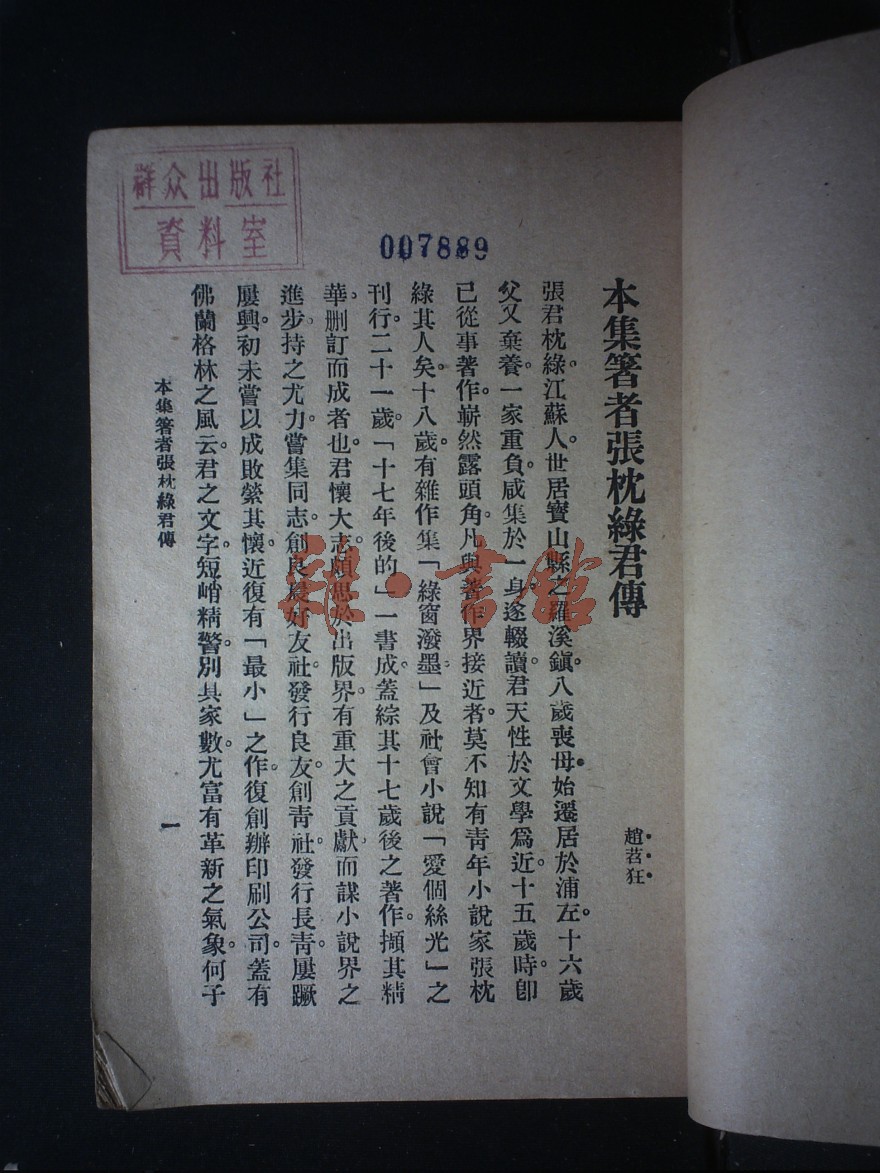 群众出版社
資料室
007889
本集箸者張枕綠君傳
趙苕狂
張君枕綠。江蘇人。世居寶山縣之羅溪鎭。八歲喪母。始遷居於浦左。十六歲
父又棄養。一家重負。咸集於一身。遂輟讀。君天性於文學爲近。十五歲時。卽
已從事著作。嶄然露頭角。凡與著作界接近者。莫不知有靑年小說家張枕
綠其人矣。十八歲。有雜作集「綠窗潑墨」及社會小說「愛個絲光」一之
刊行。二十一歲。「十七年後的」一書成。蓋綜其十七歲後之著作。擷其精
華。删訂而成者也。君懷大志。頗思於出版界。有重大之貢獻。而謀小說界之
進步。持之尤力。嘗集同志。創良晨好友社。發行良友。創靑社。發行長靑。屢蹶
屢興。初未嘗以成敗縈其懷。近復有「最小」之作。復創辦印刷公司。蓋有
佛蘭格林之風云。君之文字。短峭精警。別具家數。尤富有革新之氣象。何子
本集箸者張枕綠君傳
一
雜·書館